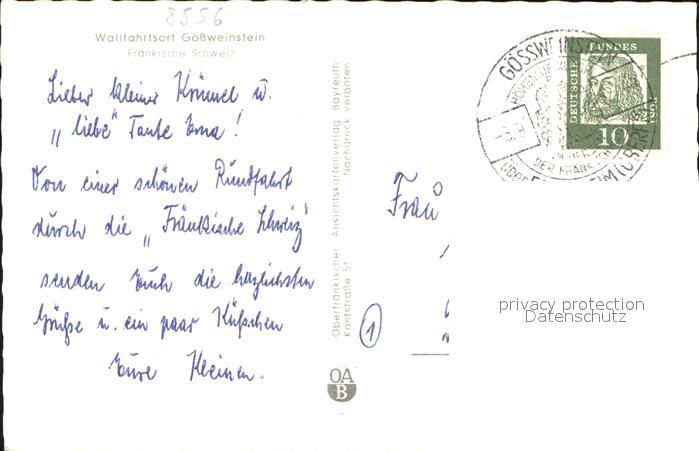 8556
Wallfahrtsort Gößweinstein
Fränkische Schweiz
Lieber kleiner Krümel u.
„liebe" Tante Erna!
Von einer schönen Rundfahrt
durch die „Fränkische Schweiz"
senden Euch die herzlichsten
Grüße u. ein paar Küßchen
Eure Kleinen.
Oberfränkischer Ansichtskartenverlag Bayreuth
Kantstraße 51 Nachdruck verboten
OA
B
Frau
1
GÖSSWEINSTEIN
HÖHENLUFT
DER FRÄNK
(OBERFR
DEUTSCHE
BUNDES
POST
10
privacy protection
Datenschutz